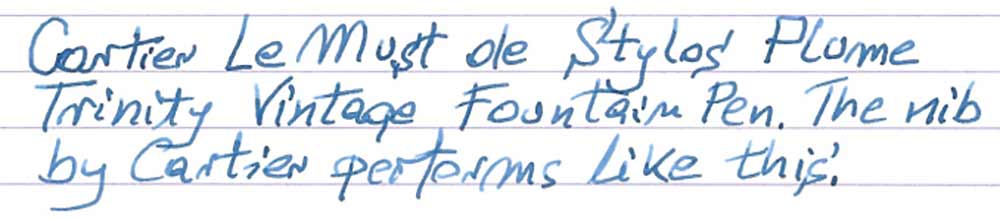 Cartier Le Must de Stylos Plume
Trinity Vintage Fountain Pen. The nib
by Cartier performs like this.